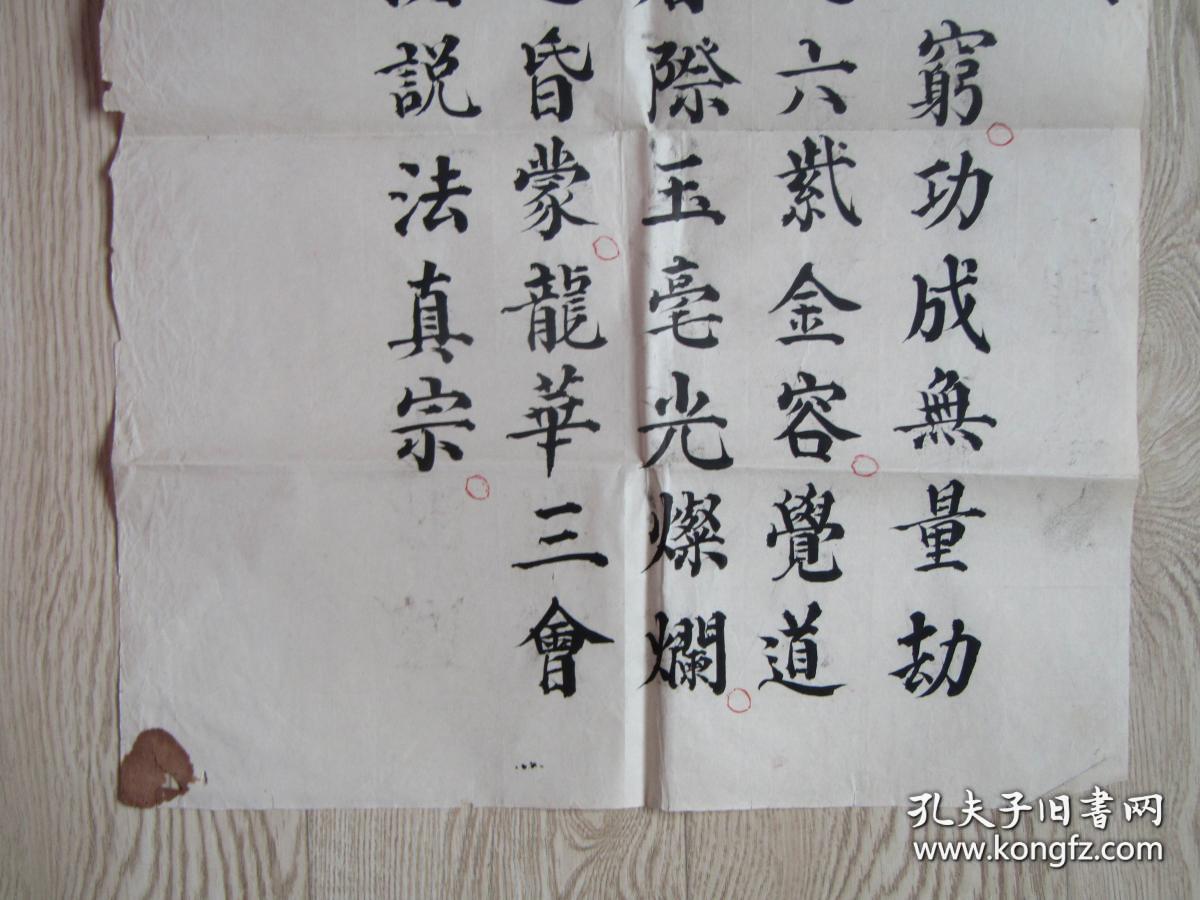 窮功成無量劫
六紫金容覺道
際玉毫光燦爛
昏蒙龍華三會
説法真宗
孔夫子旧書网
www.kongfz.com